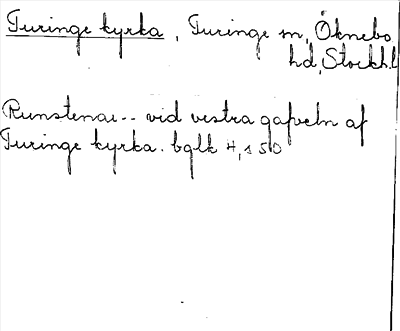 Turinge kyrka, Turinge sn, Öknebo
hd, Stockh.l
Runstenar -- vid vestra gafveln af
Turinge kyrka. bglk 4, s 50